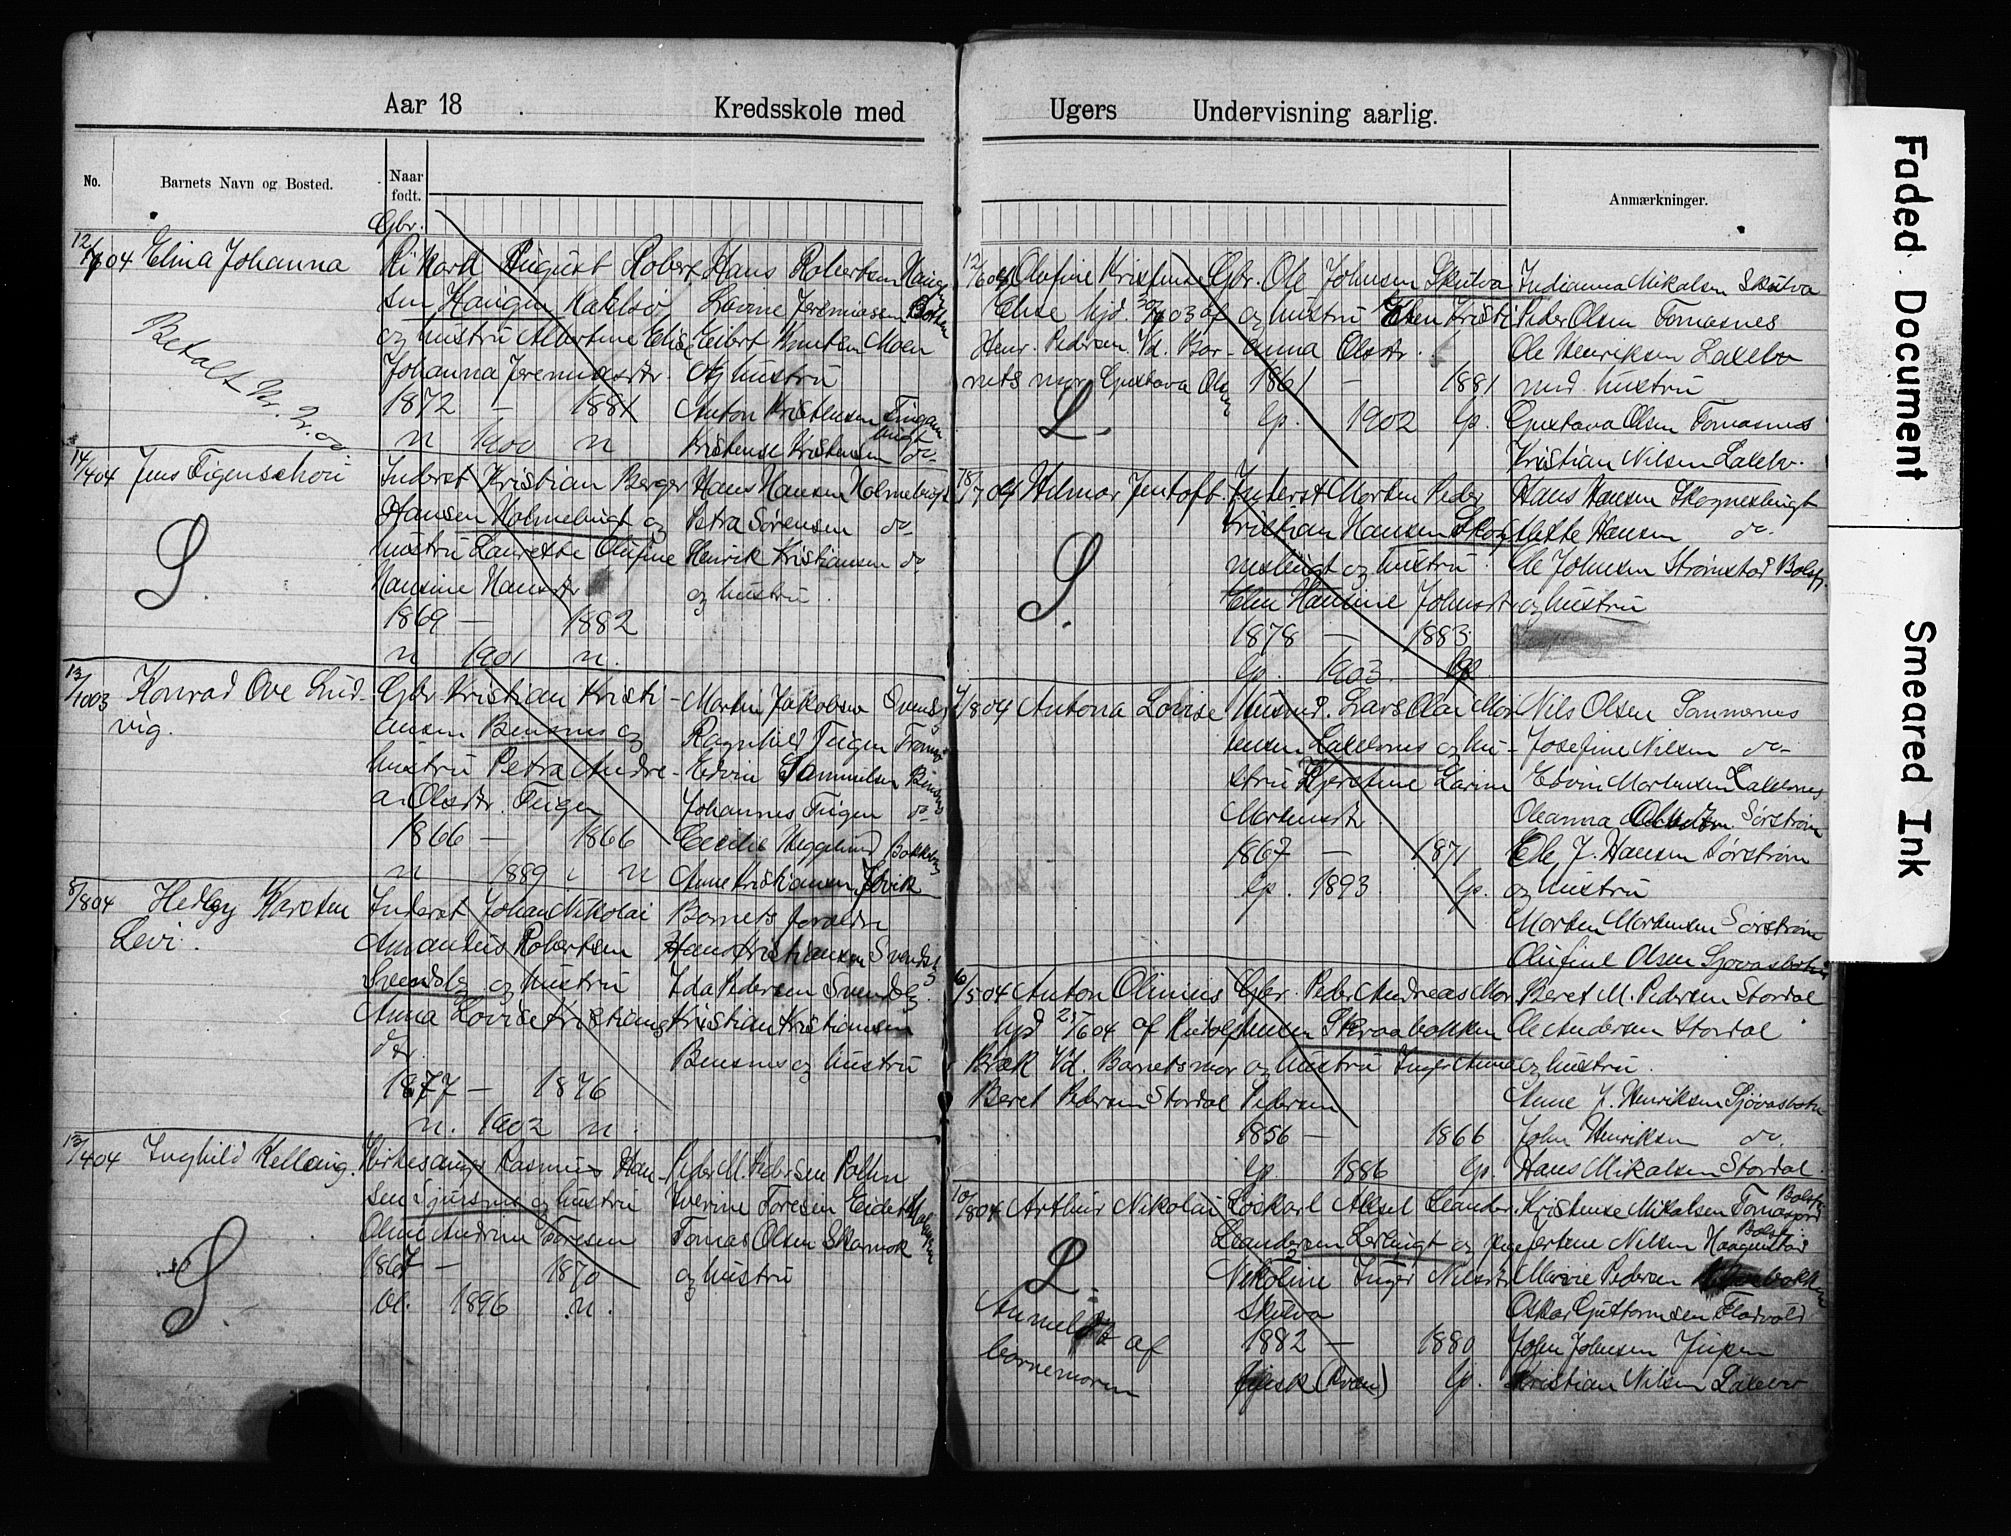 Aar 18 Kredsskole med
No. Barnets Navn og Bosted. Naar fodt.
Gbr.
12/704 Elina Johanna
Rikard August Robert-
sen Haugen Kaklsø
og hustru Martine Elise
Johanna Jeremiasdtr.
1872 – 1881
n 1900 n
Betalt Kr. 2.00
Hans Robertsen Haugen
Lovine Jeremiassen Botten
Eilert Knutsen Moen
og hustru
Anton Kristensen
Kristense Kristensen do
14/404 Jens Figenschou
S.
Inderst Kristian Berger
Hansen Holmebugt og
hustru Laurette Olufine
Hansine Hansdtr
1869 – 1882
n 1901 n.
Hans Hansen Holmebugt
Petra Sørensen do
Henrik Kristiansen do
og hustru.
13/1003 Konrad Ove Lud-
vig.
Gbr. Kristian Kristi-
ansen Bensnes og
hustru Petra Andre-
a Olsdtr. Teigen
1866 – 1866
n 1889 n
Martin Jakobsen
Ragnhild Teigen Tromsø
Edvin Samuelsen
Johannes Teigen do
Cecilie Heggelund
Anne Kristiansen
8/804 Hedley Karsten
Levi.
Inderst Johan Nikolai
Amandus Robertsen
Svendsby og hustru
Anna Lovise Kristians
dtr.
1877 – 1876
n. 1902 n.
Barnets foreldre
Hans Kristiansen Svendsby
Ida Pedersen Svendsby
Kristian Kristiansen
Bensnes og hustru
13/404 Inghild Kellaug.
S
Kirkesanger Rasmus Han-
sen og hustru
Oline Andrine Toresen
1867 – 1870
1896 n.
Peder M. Pedersen Pollen
Iverine Toresen Eidet
Tomas Olsen Skarmok
og hustru
Ugers Undervisning aarlig.
Anmærkninger.
12/604 Olufine Kristense
Elise hjd 30/703 af
Henr. Pedersen. Vd. Bar-
nets mor Gustava Olsen
L.
Gbr. Ole Johnsen Skulva
og hustru Elen Kristi
anna Olsdtr.
1861 – 1881
lp. 1902 lp.
Indianna Mikalsen Skulva
Peder Olsen Tomasnes
Ole Henriksen Lakselv
med hustru
Gustava Olsen Tomasnes
Kristian Nilsen Lakselv.
18/704 Hilmar Jentoft.
S.
Inderst Morten Peder
Kristian Hansen Skog
nesbugt og hustru
Elen Hansine Johnsdtr
1878 – 1883
lp. 1903. lp.
Hans Hansen Skognesbugt
Mette Hansen do.
Ole Johnsen Strømstad Balsfj.
og hustru
7/804 Antona Lovise
Husmd. Lars Olai Mor
tensen Lakselvnes og hu-
stru Hjertine Karine
Mortensdtr
1867 – 1871
lp. 1893 lp.
Nils Olsen Sommernes
Josefine Nilsen do
Edvin Mortensen Lakselvnes
Oleanna Sørstrøm
Ole J. Hansen Sørstrøm
og hustru
Morten Mortensen Sørstrøm
Olufine Olsen Sjøvasbotn
6/504 Anton Olinius
hjd 25/604 af Rudolf
Bræk Vd. Barnetsmor
Beret Pedersen Stordal
Gbr. Peder Andreas Mor
tensen Skraabakken
og hustru Inger Anna
Pedersen
1856 – 1866
lp. 1886 lp.
Beret M. Pedersen Stordal
Ole Andersen Stordal
og hustru.
Anne J. Henriksen Sjøvasbotn
John Henriksen do.
Hans Mikalsen Stordal.
10/804 Arthur Nikolai
L.
Anmeldt af
barnemoren
Løskarl Aksel Leander
Leandersen Lerbugt og pige
Nikoline Inger Nilsdtr
Skulva
1882 – 1880
finsk (kvæn) lp.
Kristense Mikalsen Tomasjord Balsfj.
Jertine Nilsen Haagenstad Balsfj
Marie Pedersen
Oskar Guttormsen Fladvold
John Johnsen
Kristian Nilsen Lakselv
Faded Document
Smeared Ink